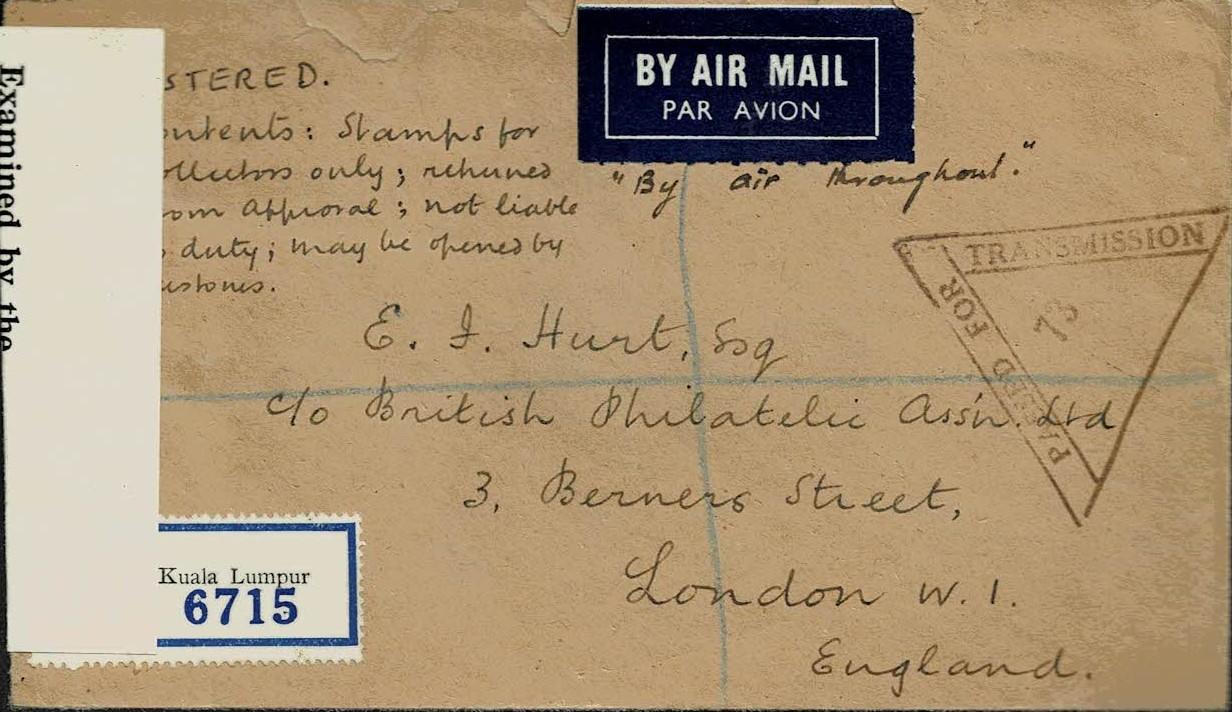 STERED.
ontents: Stamps for
ollectors only; returned
rom Approval; not liable
duty; may be opened by
ustoms.
BY AIR MAIL
PAR AVION
"By air throughout."
PASSED FOR TRANSMISSION
73
E. I. Hurt, Esq
c/o British Philatelic Ass'n. Ltd
3, Berners Street,
London W. 1.
England.
Examined by the
Kuala Lumpur
6715